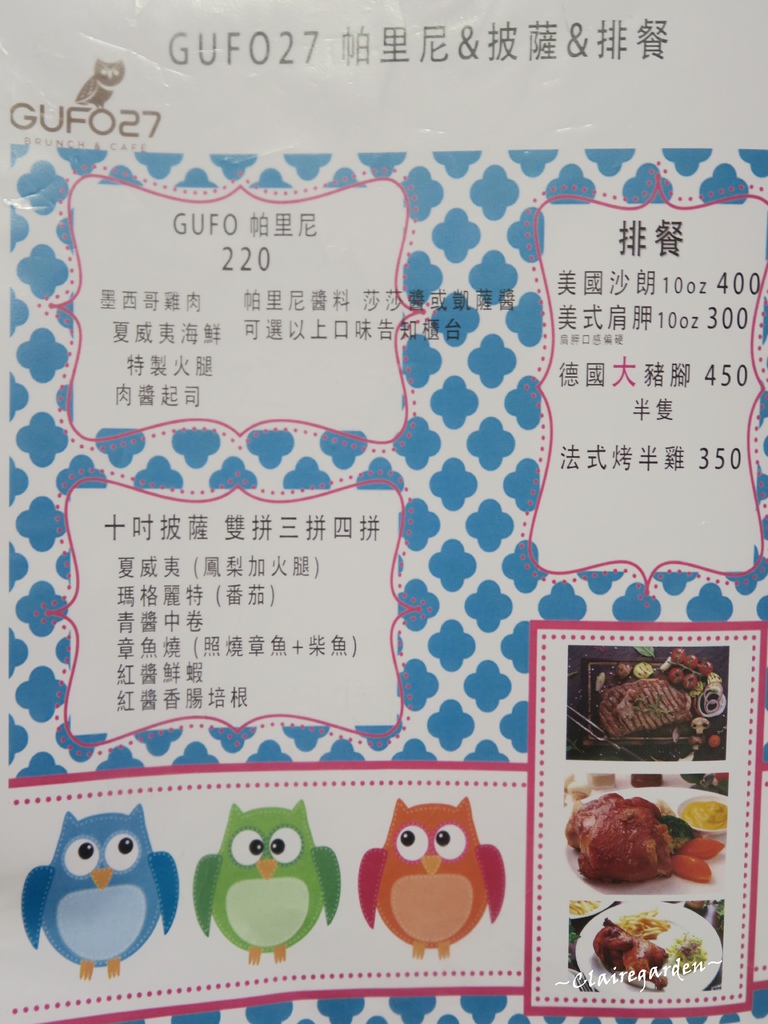 GUFO27 帕里尼&披薩&排餐
GUFO27
BRUNCH & CAFE
GUFO 帕里尼
220
墨西哥雞肉
夏威夷海鮮
特製火腿
肉醬起司
帕里尼醬料 莎莎醬或凱薩醬
可選以上口味告知櫃台
排餐
美國沙朗10oz 400
美式肩胛10oz 300
肩胛口感偏硬
德國大豬腳 450
半隻
法式烤半雞 350
十吋披薩 雙拼三拼四拼
夏威夷 (鳳梨加火腿)
瑪格麗特 (番茄)
青醬中卷
章魚燒 (照燒章魚+柴魚)
紅醬鮮蝦
紅醬香腸培根
~Clairegarden~